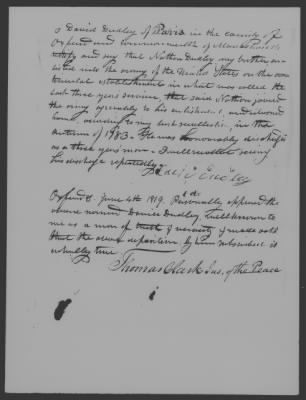 I David Dudley of Paris in the county of
Oxford and Commonwealth of Massachusetts
testify and say that Nathan Dudley my brother en-
listed into the army of the United States on the con-
tinental establishment in what was called the
last three years service, that said Nathan joined
the army agreeably to his enlistment and returned
home according to my best recollection, in the
autumn of 1783. He was honourably discharged
as a three years man - I well recollect seeing
his discharge repeatedly
David Dudley
Oxford Ss. June 4th 1819. Personally appeared the
above named David Dudley, well known to
me as a man of truth & veracity & made oath
that the above deposition by him subscribed is
wholly true
Thomas Clark Jus. of the Peace